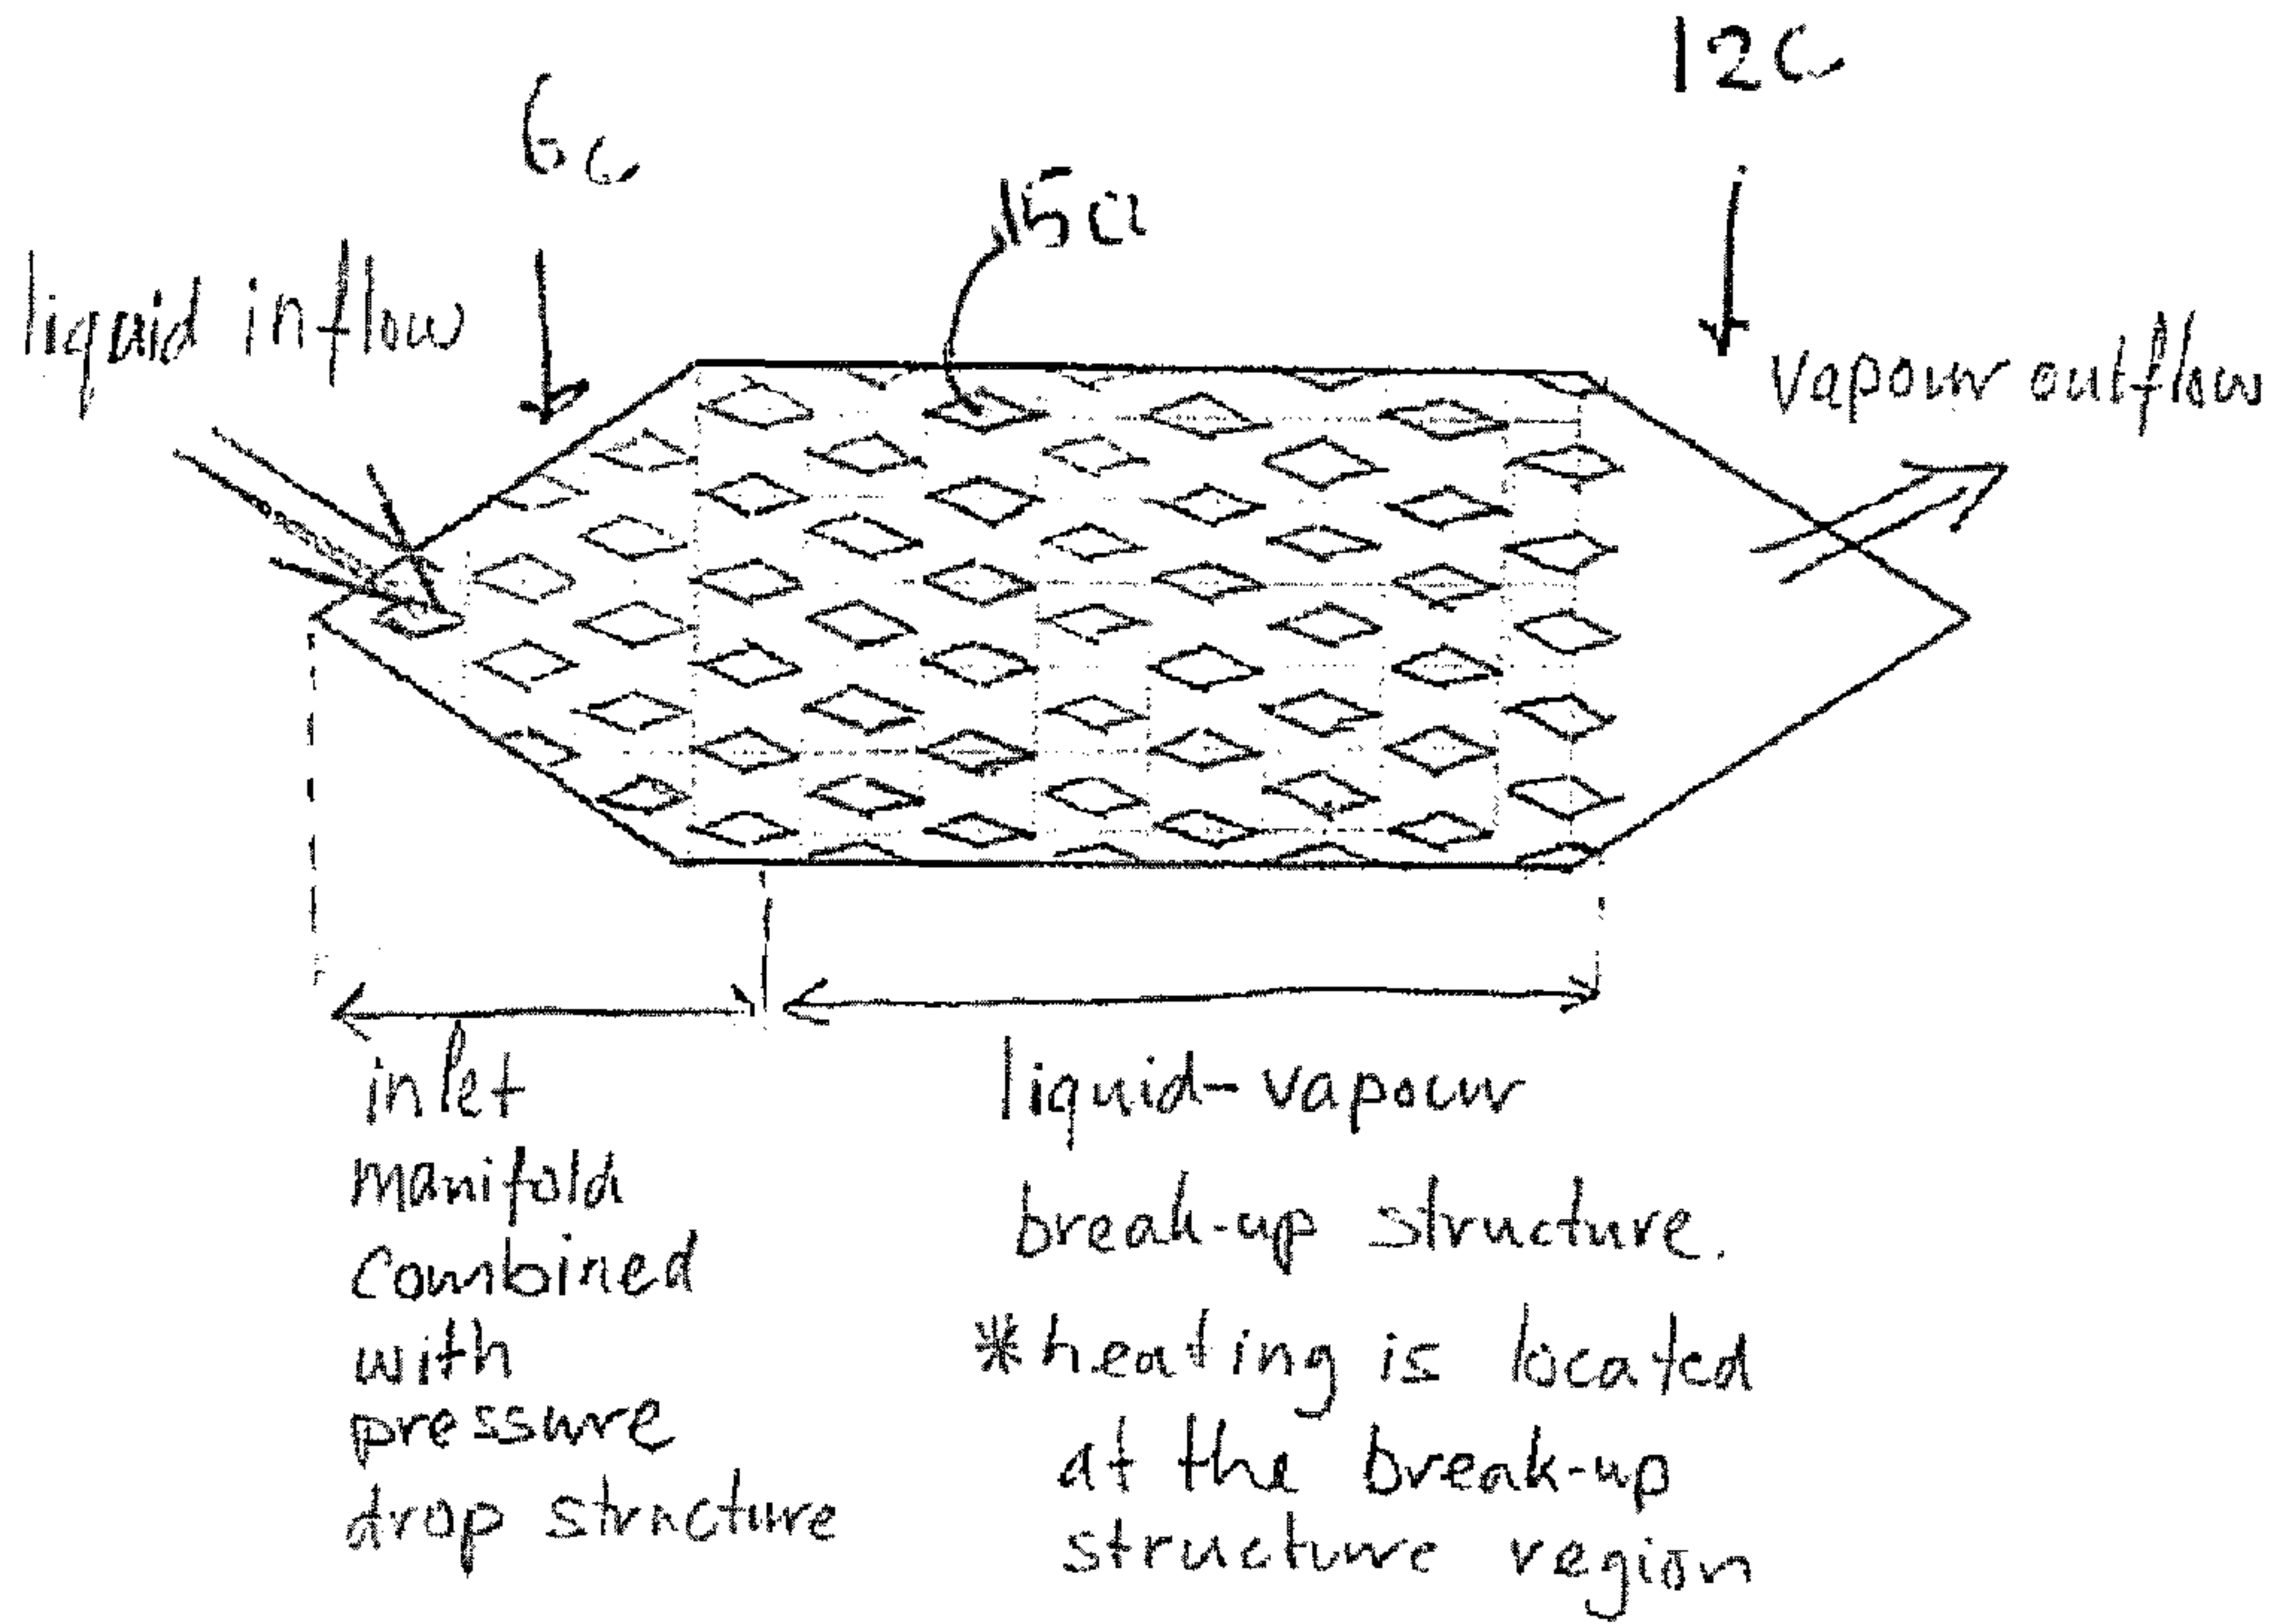 12c
6c
15a
liquid inflow
vapour outflow
inlet
manifold
combined
with
pressure
drop structure
liquid-vapour
break-up structure.
*heating is located
at the break-up
structure region